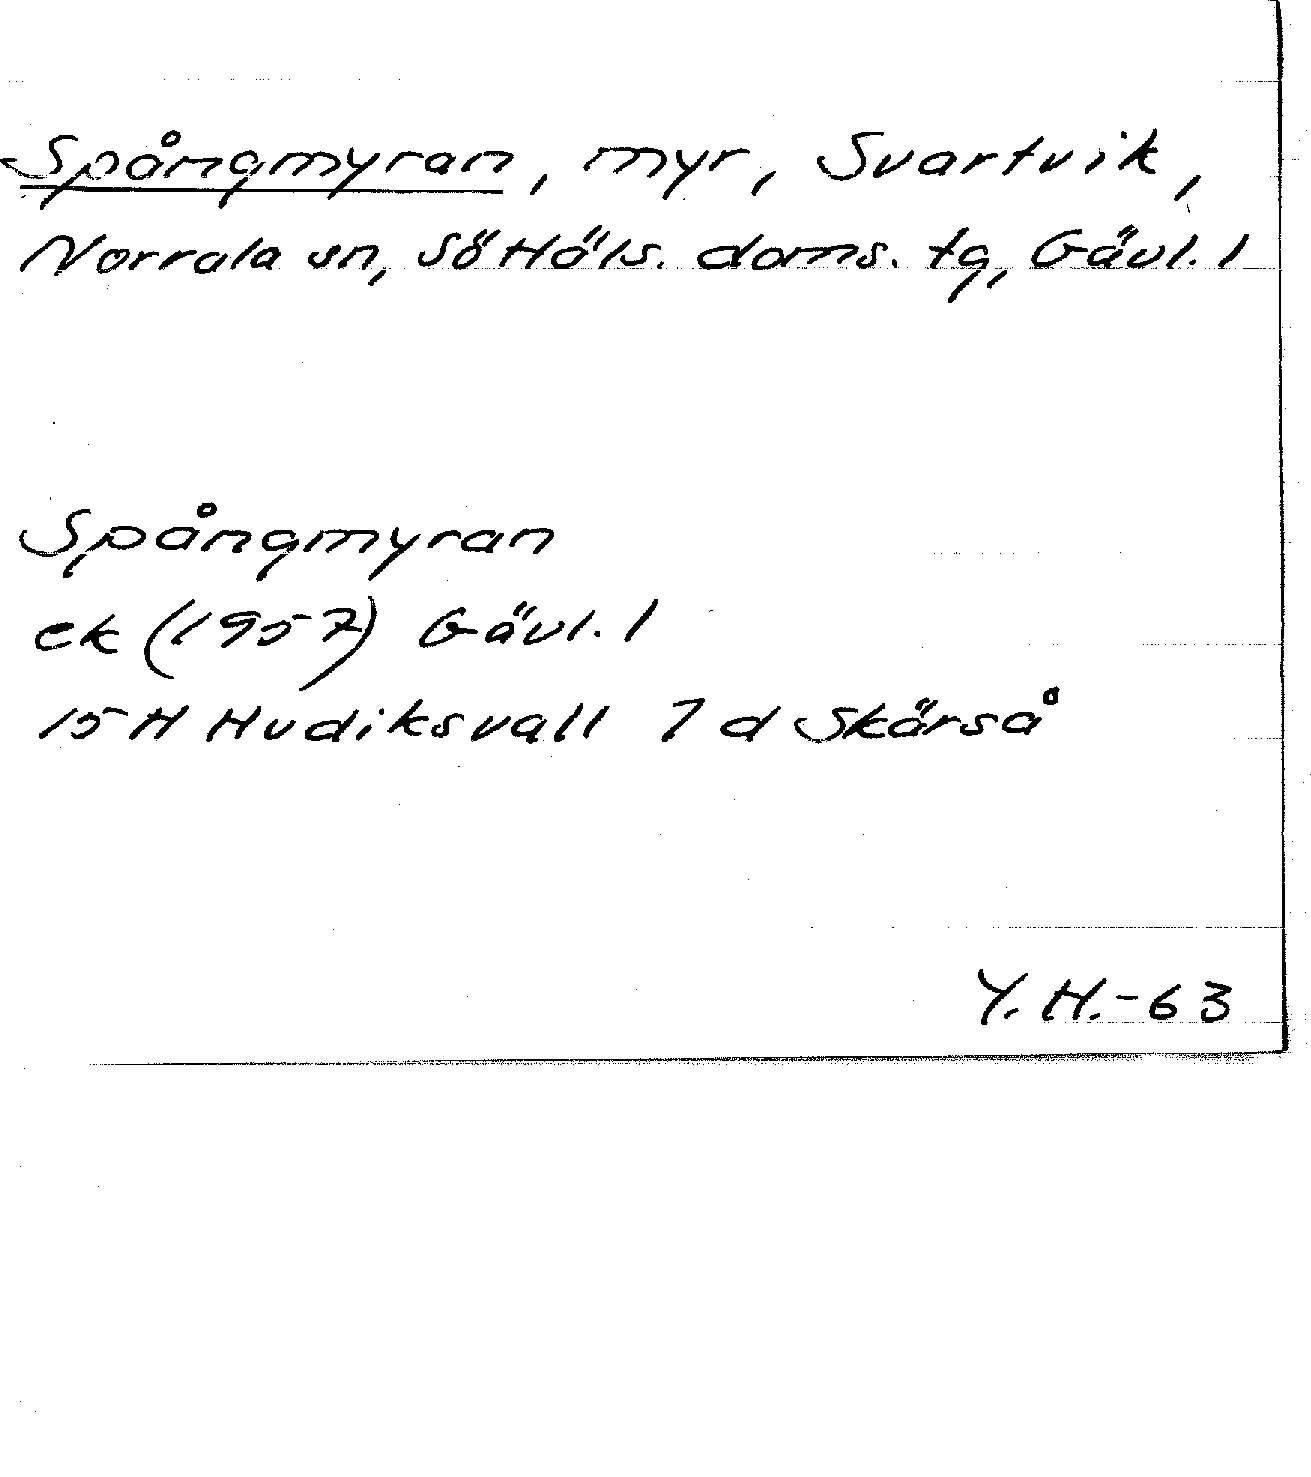 Spångmyran, myr, Svartvik,
Norrala sn, SöHäls. doms. tg, Gävl. l
Spångmyran
ek (1957) Gävl. l
15 H Hudiksvall 7 d Skärså
Y. H. - 63